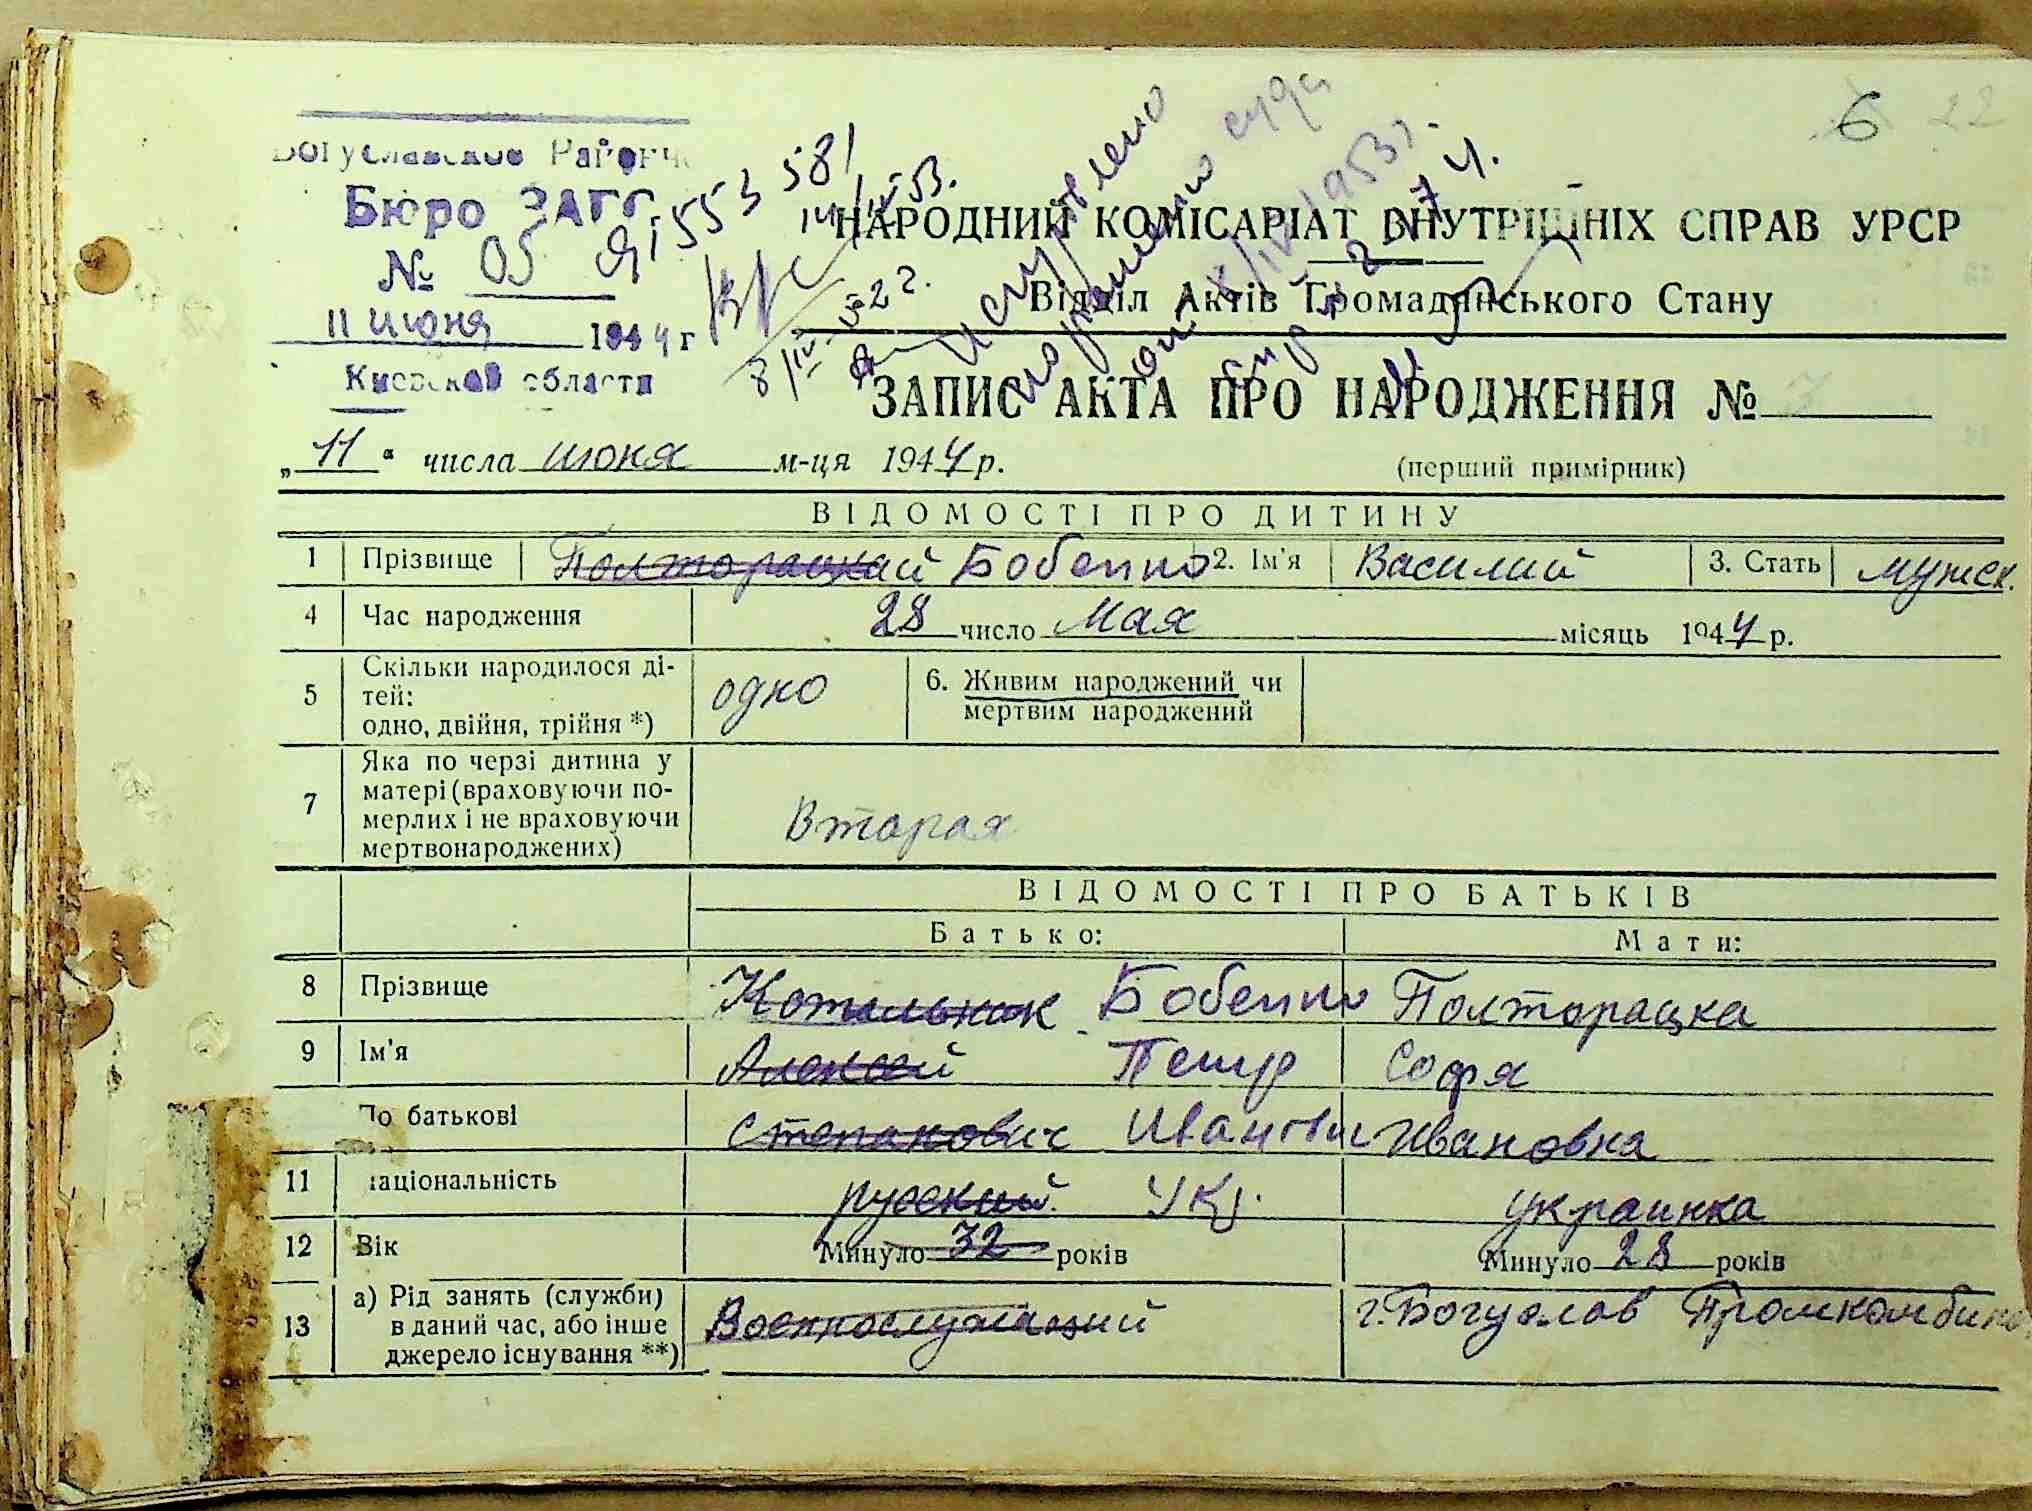 Богуславское Районн
Бюро ЗАГС
№ 05
11 июня 1944 г
Киевской области
ЯІ 553 581
14/IV 53.
исчуплено
суда
НАРОДНИЙ КОМІСАРІАТ ВНУТРІШНІХ СПРАВ УРСР
Відділ Актів Громадянського Стану
ЗАПИС АКТА ПРО НАРОДЖЕННЯ №
6 22
„11“ числа июня м-ця 1944 р.
(перший примірник)
ВІДОМОСТІ ПРО ДИТИНУ
1 Прізвище Полторацкий Бобенко 2. Ім'я Василий 3. Стать мужск.
4 Час народження 28 число Мая місяць 1944 р.
5 Скільки народилося ді-
тей:
одно, двійня, трійня *)
одно
6. Живим народжений чи
мертвим народжений
7 Яка по черзі дитина у
матері (враховуючи по-
мерлих і не враховуючи
мертвонароджених)
Вторая
ВІДОМОСТІ ПРО БАТЬКІВ
Батько: Мати:
8 Прізвище Котельник Бобенко Полторацка
9 Ім'я Алексей Петр Софя
По батькові Степанович Иванович Ивановна
11 національність русский. Укр. украинка
12 Вік Минуло 32 років Минуло 28 років
13 а) Рід занять (служби)
в даний час, або інше
джерело існування **)
Военнослужащий г. Богуслав Промкомбино